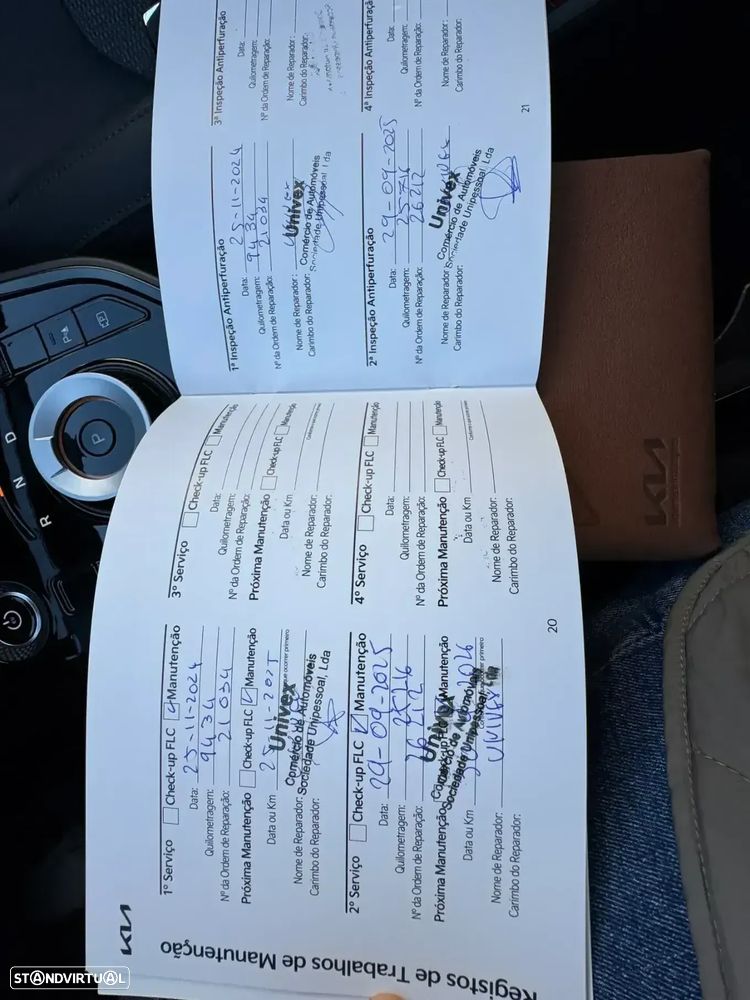 KIA
Registos de Trabalhos de Manutenção
1º Serviço Check-up FLC Manutenção
Data: 25-11-2024
Quilometragem: 9434
Nº da Ordem de Reparação: 21034
Próxima Manutenção Check-up FLC Manutenção
Data ou Km
que ocorrer primeiro
Nome de Reparador:
Carimbo do Reparador:
Univex
Comércio de Automóveis
Sociedade Unipessoal, Lda
2º Serviço Check-up FLC Manutenção
Data: 29-09-2025
Quilometragem: 25716
Nº da Ordem de Reparação: 26212
Próxima Manutenção Manutenção
Data ou Km
Nome de Reparador: UNIVEX
Carimbo do Reparador:
Univex
Comércio de Automóveis
Sociedade Unipessoal
3º Serviço Check-up FLC Manutenção
Data:
Quilometragem:
Nº da Ordem de Reparação:
Próxima Manutenção Check-up FLC Manutenção
Data ou Km
Nome de Reparador:
Carimbo do Reparador:
4º Serviço Check-up FLC Manutenção
Data:
Quilometragem:
Nº da Ordem de Reparação:
Próxima Manutenção Check-up FLC Manutenção
Data ou Km
Nome de Reparador:
Carimbo do Reparador:
20
1ª Inspeção Antiperfuração
Data: 25-11-2024
Quilometragem: 9434
Nº da Ordem de Reparação: 21034
Nome de Reparador:
Carimbo do Reparador:
Univex
Comércio de Automóveis
Sociedade Unipessoal Lda
2ª Inspeção Antiperfuração
Data: 29-09-2025
Quilometragem: 25716
Nº da Ordem de Reparação: 26212
Nome de Reparador:
Carimbo do Reparador:
Univex
Comércio de Automóveis
Sociedade Unipessoal, Lda
3ª Inspeção Antiperfuração
Data:
Quilometragem:
Nº da Ordem de Reparação:
Nome de Reparador:
Carimbo do Reparador:
4ª Inspeção Antiperfuração
Data:
Quilometragem:
Nº da Ordem de Reparação:
Nome de Reparador:
Carimbo do Reparador:
21
P
R
N
D
KIA
STANDVIRTUAL